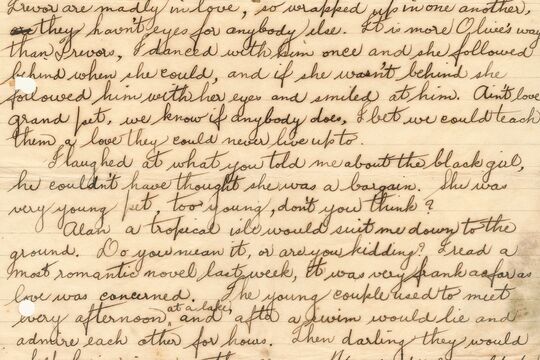 Trevor are madly in love, so wrapped up in one another,
they havn't eyes for anybody else. It is more Olive's way
than Trevors, I danced with him once and she followed
behind when she could, and if she wasn't behind she
followed him with her eyes and smiled at him. Ain't love
grand pet, we know if anybody does, I bet we could teach
them a love they could never live up to.
I laughed at what you told me about the black girl,
he couldn't have thought she was a bargain. She was
very young pet, too young, don't you think?
Alan a tropical isle would suit me down to the
ground. Do you mean it, or are you kidding? I read a
most romantic novel last week, it was very frank as far as
love was concerned. The young couple used to meet
every afternoon at a lake, and after a swim would lie and
admire each other for hours. Then darling they would